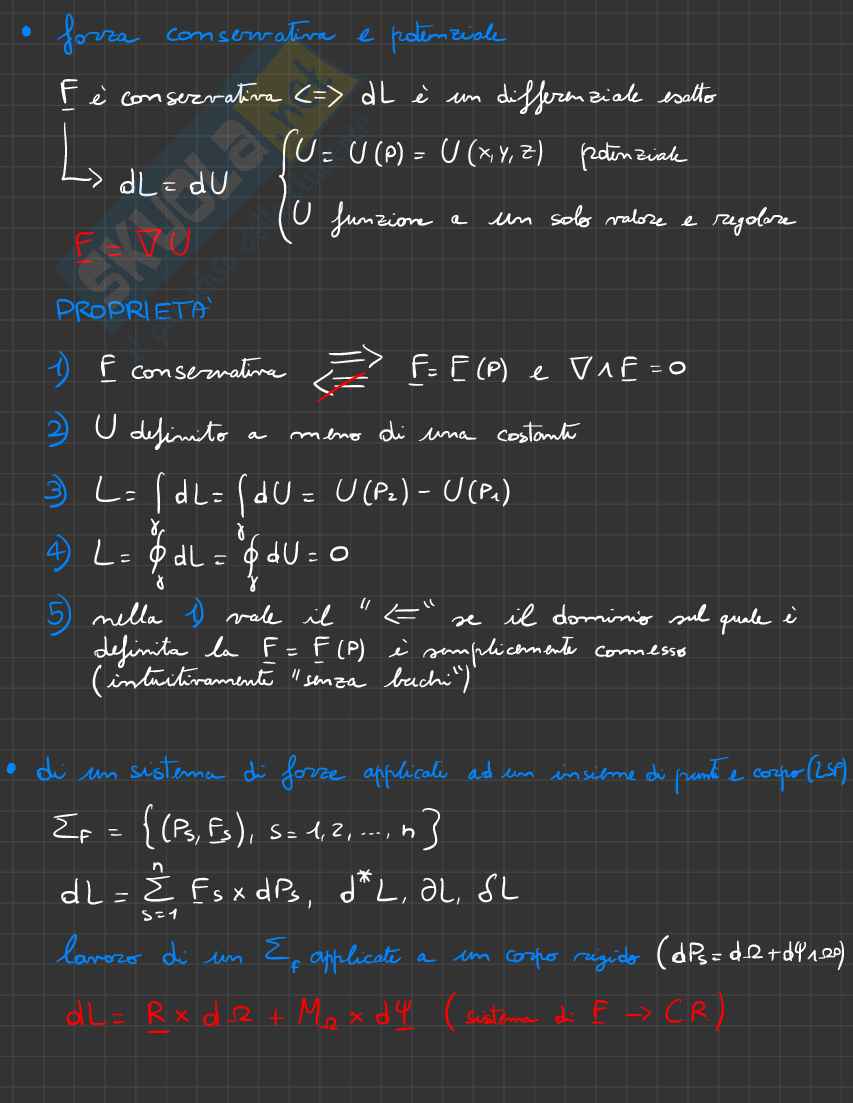 • forza conservativa e potenziale
F è conservativa <=> dL è un differenziale esatto
dL = dU { U = U(P) = U(x,y,z) potenziale
U funzione a un solo valore e regolare
F = ∇U
PROPRIETA'
1) F conservativa ⟹ F = F(P) e ∇∧F = 0
2) U definito a meno di una costante
3) L = ∫γ dL = ∫γ dU = U(P₂) - U(P₁)
4) L = ∮γ dL = ∮γ dU = 0
5) nella 1) vale il "⇐" se il dominio sul quale è
definita la F = F(P) è semplicemente connesso
(intuitivamente "senza buchi")
• di un sistema di forze applicate ad un insieme di punti e corpo
Σ_F = {(Ps, Fs), s = 1, 2, ..., n}
dL = Σ_{s=1}^{n} Fs × dPs, d*L, ∂L, δL
lavoro di un Σ_F applicate a un corpo rigido (dPs = dΩ + dψ∧ΩP)
dL = R × dΩ + M_Ω × dψ (sistema di F → CR)
SKUOLA.net